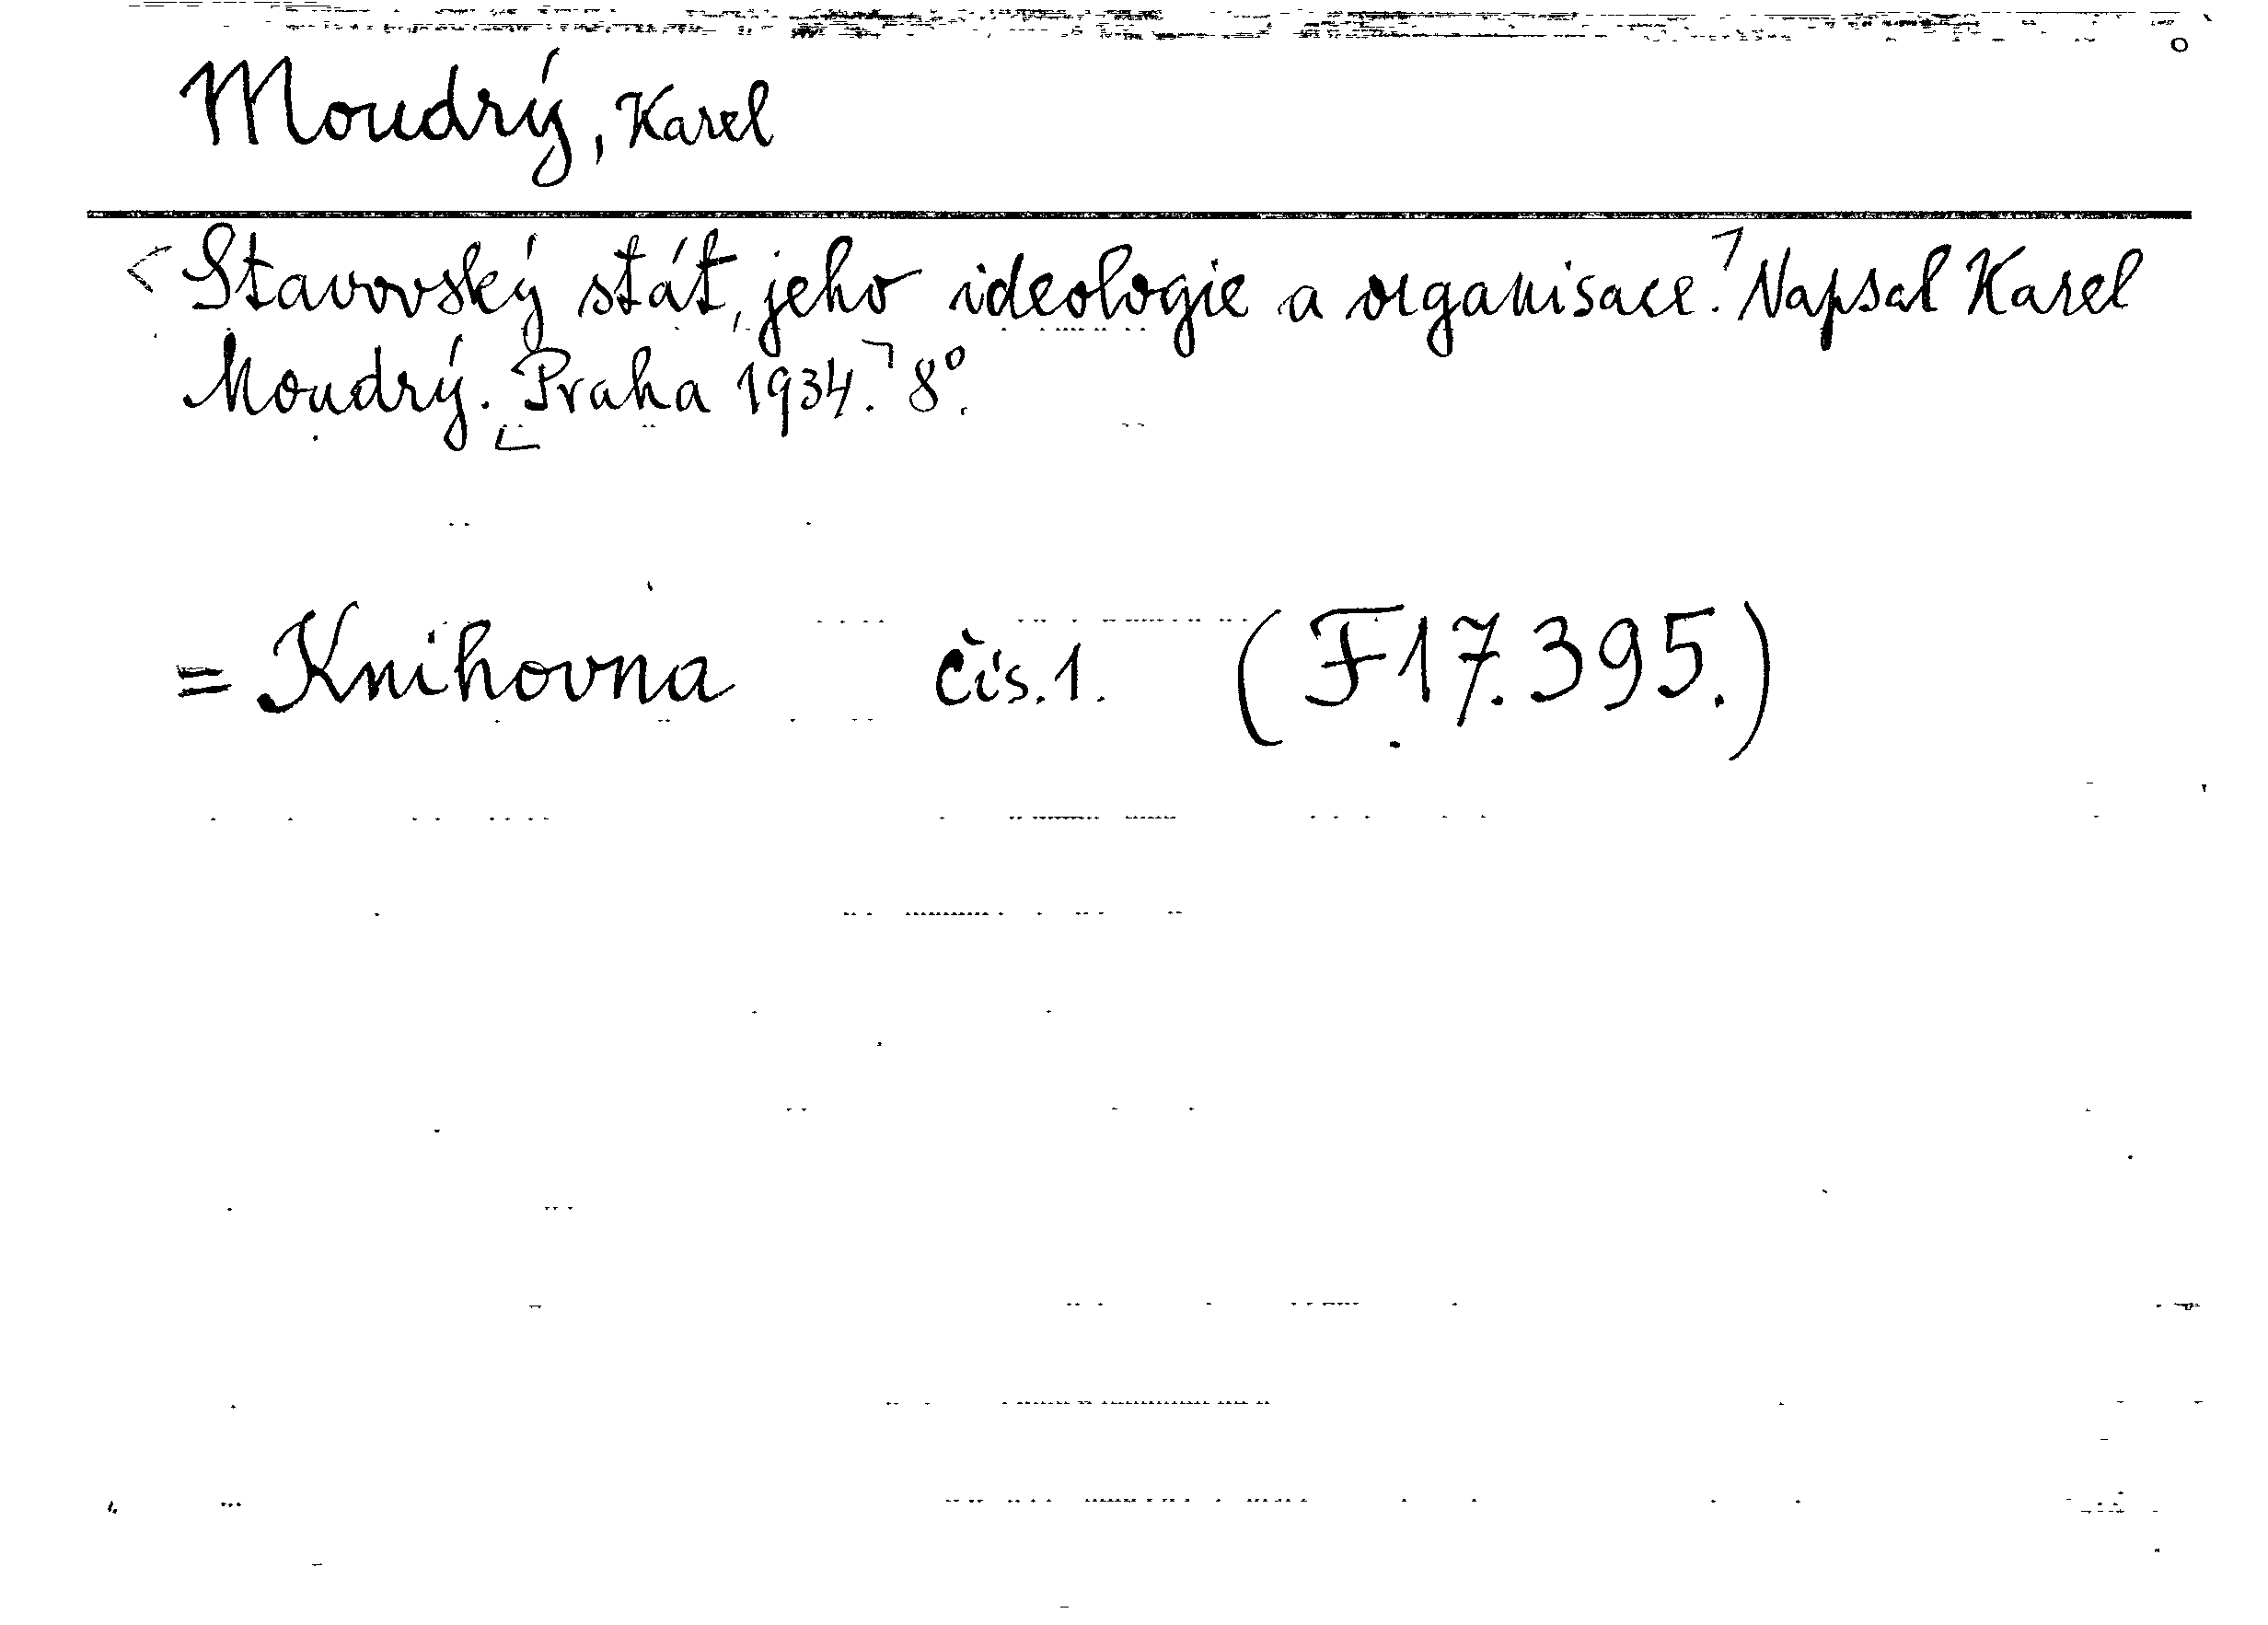 Moudrý, Karel
<Stavovský stát, jeho ideologie a organisace.⌝ Napsal Karel
Moudrý. ⌞Praha 1934.⌝ 8°.
= Knihovna čís. 1. (F 17.395.)